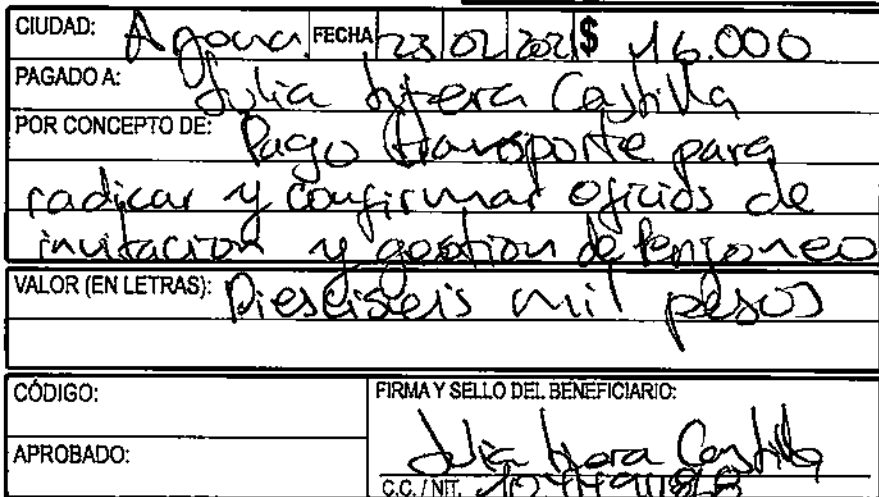 CIUDAD: Arjona FECHA 23 02 2021 $ 16.000
PAGADO A: Julia Herrera Castilla
POR CONCEPTO DE: Pago transporte para
radicar y confirmar oficios de
invitacion y gestion de
VALOR (EN LETRAS): Dieciseis mil pesos
CÓDIGO: FIRMA Y SELLO DEL BENEFICIARIO:
APROBADO: Julia Castilla
C.C. / NIT.